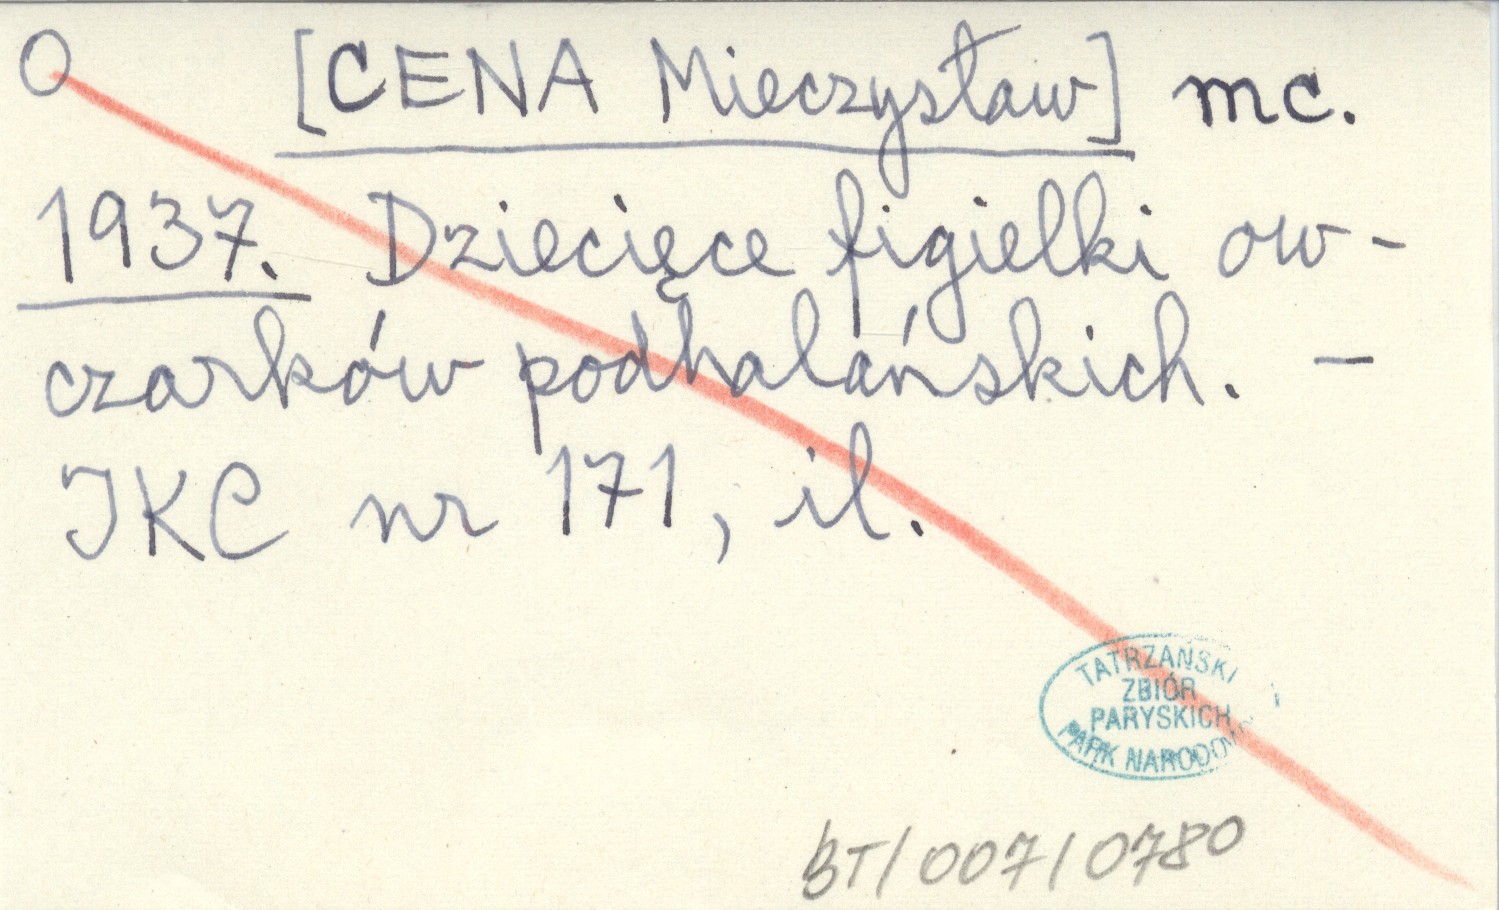 O [CENA Mieczysław] mc.
1937. Dziecięce figielki ow-
czarków podhalańskich. –
IKC nr 171, il.
TATRZAŃSKI
ZBIÓR
PARYSKICH
PARK NARODOWY
BT/007/0780